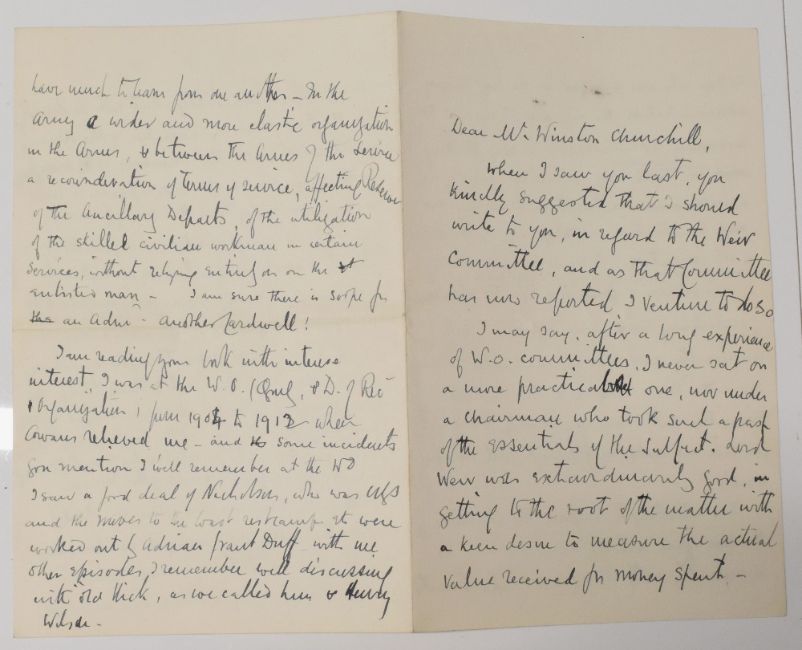 Dear Mr. Winston Churchill,
When I saw you last, you
kindly suggested that I should
write to you, in regard to the Weir
Committee, and as that Committee
has now reported I venture to do so
I may say, after a long experience
of W.O. committees, I never sat on
a more practical one, nor under
a chairman who took such a grasp
of the essentials of the subject. Lord
Weir was extraordinarily good, in
getting to the root of the matter with
a keen desire to measure the actual
value received for money spent. –
have much to learn from one another – In the
Army a wider and more elastic organization
in the Arms, & between the Arms of the Service
a reconsideration of terms of service, affecting Reserve
of the Ancillary Departs, of the utilization
of the skilled civilian workman in certain
services, without relying entirely on the
enlisted man – I am sure there is scope for
an Adm – another Cardwell!
I am reading your book with intense
interest. I was at the W.O. ( & D. of
Organization) from 1904 to 1912 when
Cowans relieved me – and some incidents
you mention I well remember at the WO
I saw a good deal of Nicholson, who was CIGS
and the moves to the
worked out by Adrian Grant Duff with me
other Episodes, I remember well discussing
with old Nick, as we called him & Henry
Wilson –